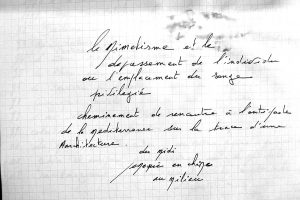 le Mimetisme et le
depassement de l'individu
ou l'emplacement du songe
privilegié
cheminement de rencontre à l'antipode
de la mediterranée sur la trace d'une
Architecture.
du midi
en chêne
au milieu